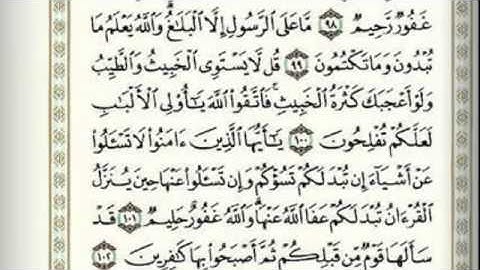 غَفُورٌ رَّحِيمٌ ٩٨ مَّا عَلَى ٱلرَّسُولِ إِلَّا ٱلْبَلَـٰغُ ۗ وَٱللَّهُ يَعْلَمُ مَا
تُبْدُونَ وَمَا تَكْتُمُونَ ٩٩ قُل لَّا يَسْتَوِى ٱلْخَبِيثُ وَٱلطَّيِّبُ
وَلَوْ أَعْجَبَكَ كَثْرَةُ ٱلْخَبِيثِ ۚ فَٱتَّقُوا۟ ٱللَّهَ يَـٰٓأُو۟لِى ٱلْأَلْبَـٰبِ
لَعَلَّكُمْ تُفْلِحُونَ ١٠٠ يَـٰٓأَيُّهَا ٱلَّذِينَ ءَامَنُوا۟ لَا تَسْـَٔلُوا۟
عَنْ أَشْيَآءَ إِن تُبْدَ لَكُمْ تَسُؤْكُمْ وَإِن تَسْـَٔلُوا۟ عَنْهَا حِينَ يُنَزَّلُ
ٱلْقُرْءَانُ تُبْدَ لَكُمْ عَفَا ٱللَّهُ عَنْهَا ۗ وَٱللَّهُ غَفُورٌ حَلِيمٌ ١٠١ قَدْ
سَأَلَهَا قَوْمٌ مِّن قَبْلِكُمْ ثُمَّ أَصْبَحُوا۟ بِهَا كَـٰفِرِينَ ١٠٢